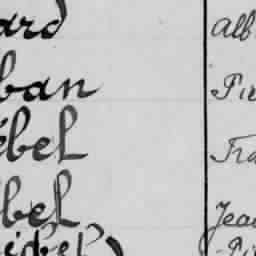 ard Alb
ban Pie
ébel Fra
bel Jea
eibel) -Pi